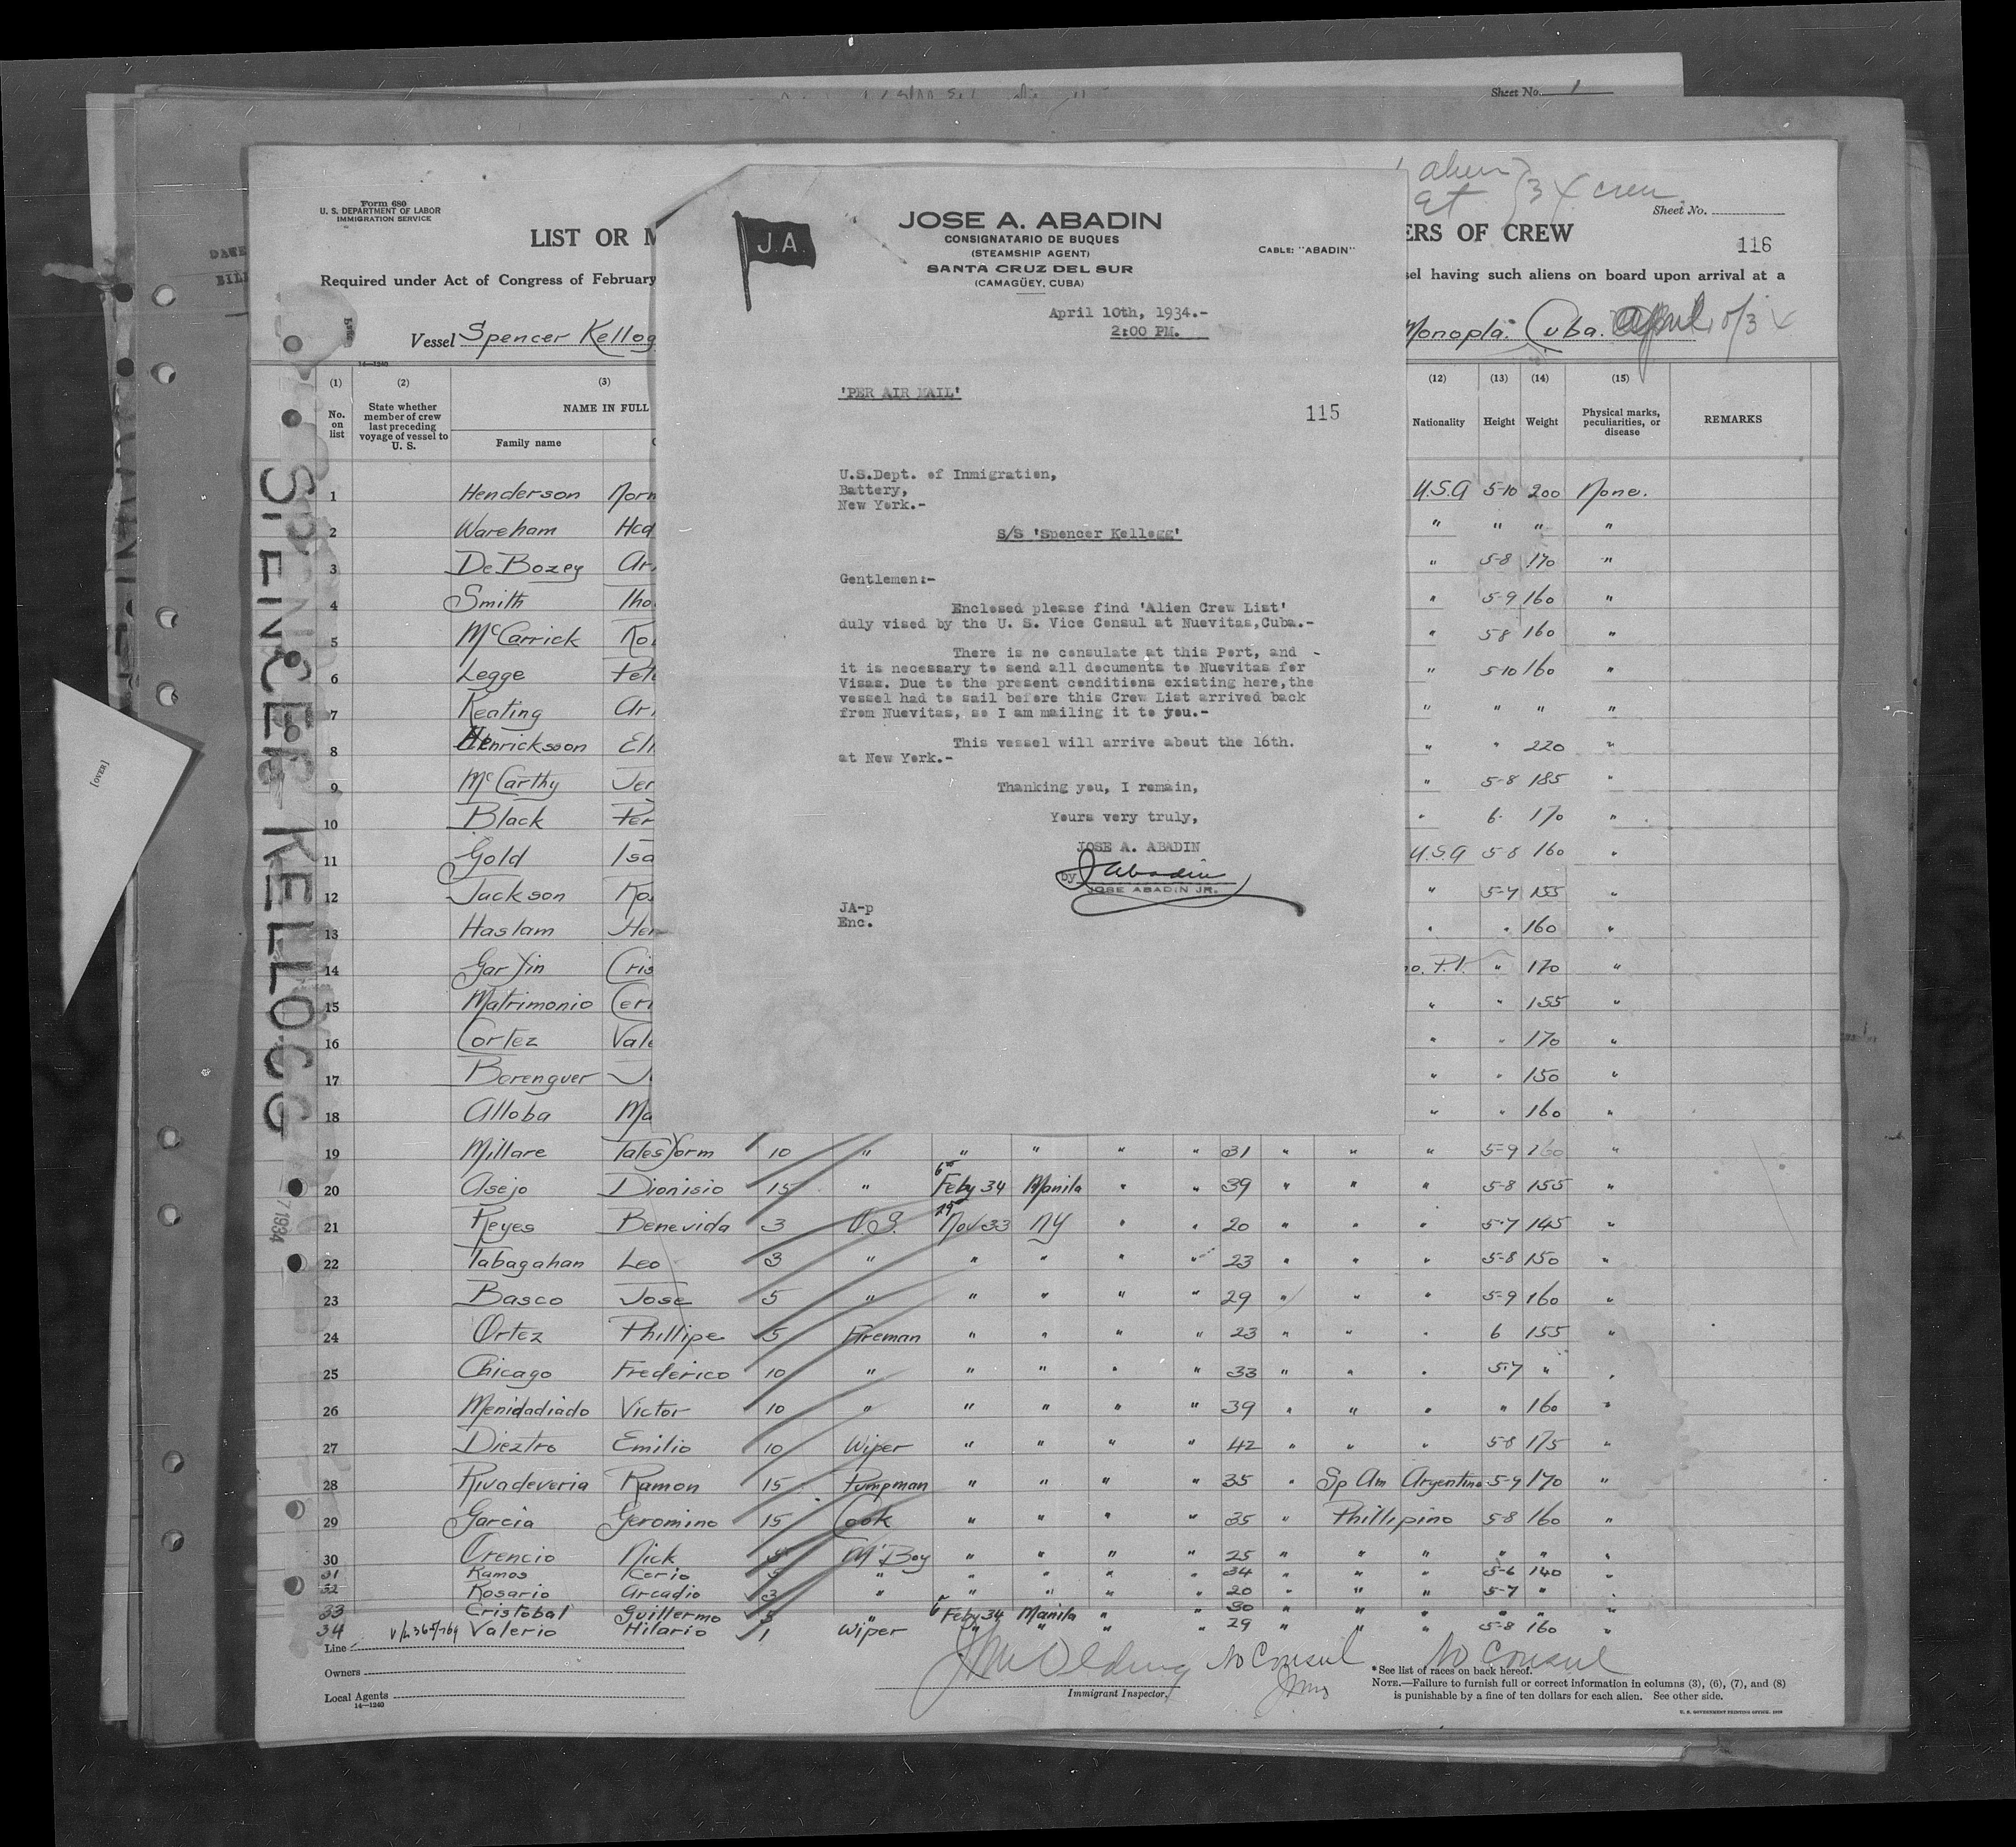 Sheet No. 1
alien
at
34 crew
Form 680
U. S. DEPARTMENT OF LABOR
IMMIGRATION SERVICE
Sheet No.
LIST OR M
ERS OF CREW
116
Required under Act of Congress of February
sel having such aliens on board upon arrival at a
Vessel Spencer Kellog
Monopla. Cuba. April
14—1240
(1) (2) (3) (12) (13) (14) (15)
No. on list
State whether member of crew last preceding voyage of vessel to U. S.
NAME IN FULL
Family name
Nationality Height Weight Physical marks, peculiarities, or disease REMARKS
SPENCER KELLOGG
7 1934
[OVER]
J.A.
JOSE A. ABADIN
CONSIGNATARIO DE BUQUES
(STEAMSHIP AGENT)
CABLE: "ABADIN"
SANTA CRUZ DEL SUR
(CAMAGÜEY, CUBA)
April 10th, 1934.-
2:00 PM.
'PER AIR MAIL'
115
U.S.Dept. of Inmigration,
Battery,
New York.-
S/S 'Spencer Kellogg'
Gentlemen:-
Enclosed please find 'Alien Crew List'
duly vised by the U. S. Vice Consul at Nuevitas,Cuba.-
There is no consulate at this Port, and -
it is necessary to send all documents to Nuevitas for
Visas. Due to the present conditions existing here,the
vessel had to sail before this Crew List arrived back
from Nuevitas, so I am mailing it to you.-
This vessel will arrive about the 16th.
at New York.-
Thanking you, I remain,
Yours very truly,
JOSE A. ABADIN
by J Abadin
JOSE ABADIN JR.
JA-p
Enc.
1 Henderson Norm U.S.A 5-10 200 None.
2 Wareham Hed " " " "
3 DeBozey Ar " 5-8 170 "
4 Smith Tho " 5-9 160 "
5 McCarrick Ro " 5-8 160 "
6 Legge Pet " 5-10 160 "
7 Keating Ar " " " "
8 Henricksson Eli " " 220 "
9 McCarthy Jer " 5-8 185 "
10 Black Per " 6 170 "
11 Gold Isa U.S.A 5-8 160 "
12 Jackson Ro " 5-7 155 "
13 Haslam Hen " " 160 "
14 Cris o. P.I. " 170 "
15 Matrimonio Ceri " " 155 "
16 Cortez Vale " " 170 "
17 Berenguer J " " 150 "
18 Alloba Ma " " 160 "
19 Millare Talesform 10 " " " " " 31 " " " 5-9 160 "
20 Asejo Dionisio 15 " 6th Feby 34 Manila " " 39 " " " 5-8 155 "
21 Reyes Benevida 3 O.S. 29 Nov 33 NY " " 20 " " " 5-7 145 "
22 Tabagahan Leo 3 " " " " " 23 " " " 5-8 150 "
23 Basco Jose 5 " " " " " 29 " " " 5-9 160 "
24 Ortez Phillipe 5 Fireman " " " " 23 " " " 6 155 "
25 Chicago Frederico 10 " " " " " 33 " " " 5-7 " "
26 Menidadiado Victor 10 " " " " " 39 " " " " 160 "
27 Dieztro Emilio 10 Wiper " " " " 42 " " " 5-8 175 "
28 Rivadeveria Ramon 15 Pumpman " " " " 35 " Sp Am Argentina 5-7 170 "
29 Garcia Geromino 15 Cook " " " " 35 " Phillipino 5-8 160 "
30 Orencio Nick 5 M'Boy " " " " 25 " " " " " "
31 Ramos Icerio 5 " " " " " 34 " " " 5-6 140 "
32 Rosario Arcadio 3 " " " " " 20 " " " 5-7 " "
33 Cristobal Guillermo 5 " 6 Feby 34 Manila " " 30 " " " " " "
34 Valerio Hilario 1 Wiper " " " " 29 " " " 5-8 160 "
Line
Owners
Local Agents
14—1240
No Consul
No Consul
Immigrant Inspector.
*See list of races on back hereof.
NOTE.—Failure to furnish full or correct information in columns (3), (6), (7), and (8)
is punishable by a fine of ten dollars for each alien. See other side.
U. S. GOVERNMENT PRINTING OFFICE. 1929